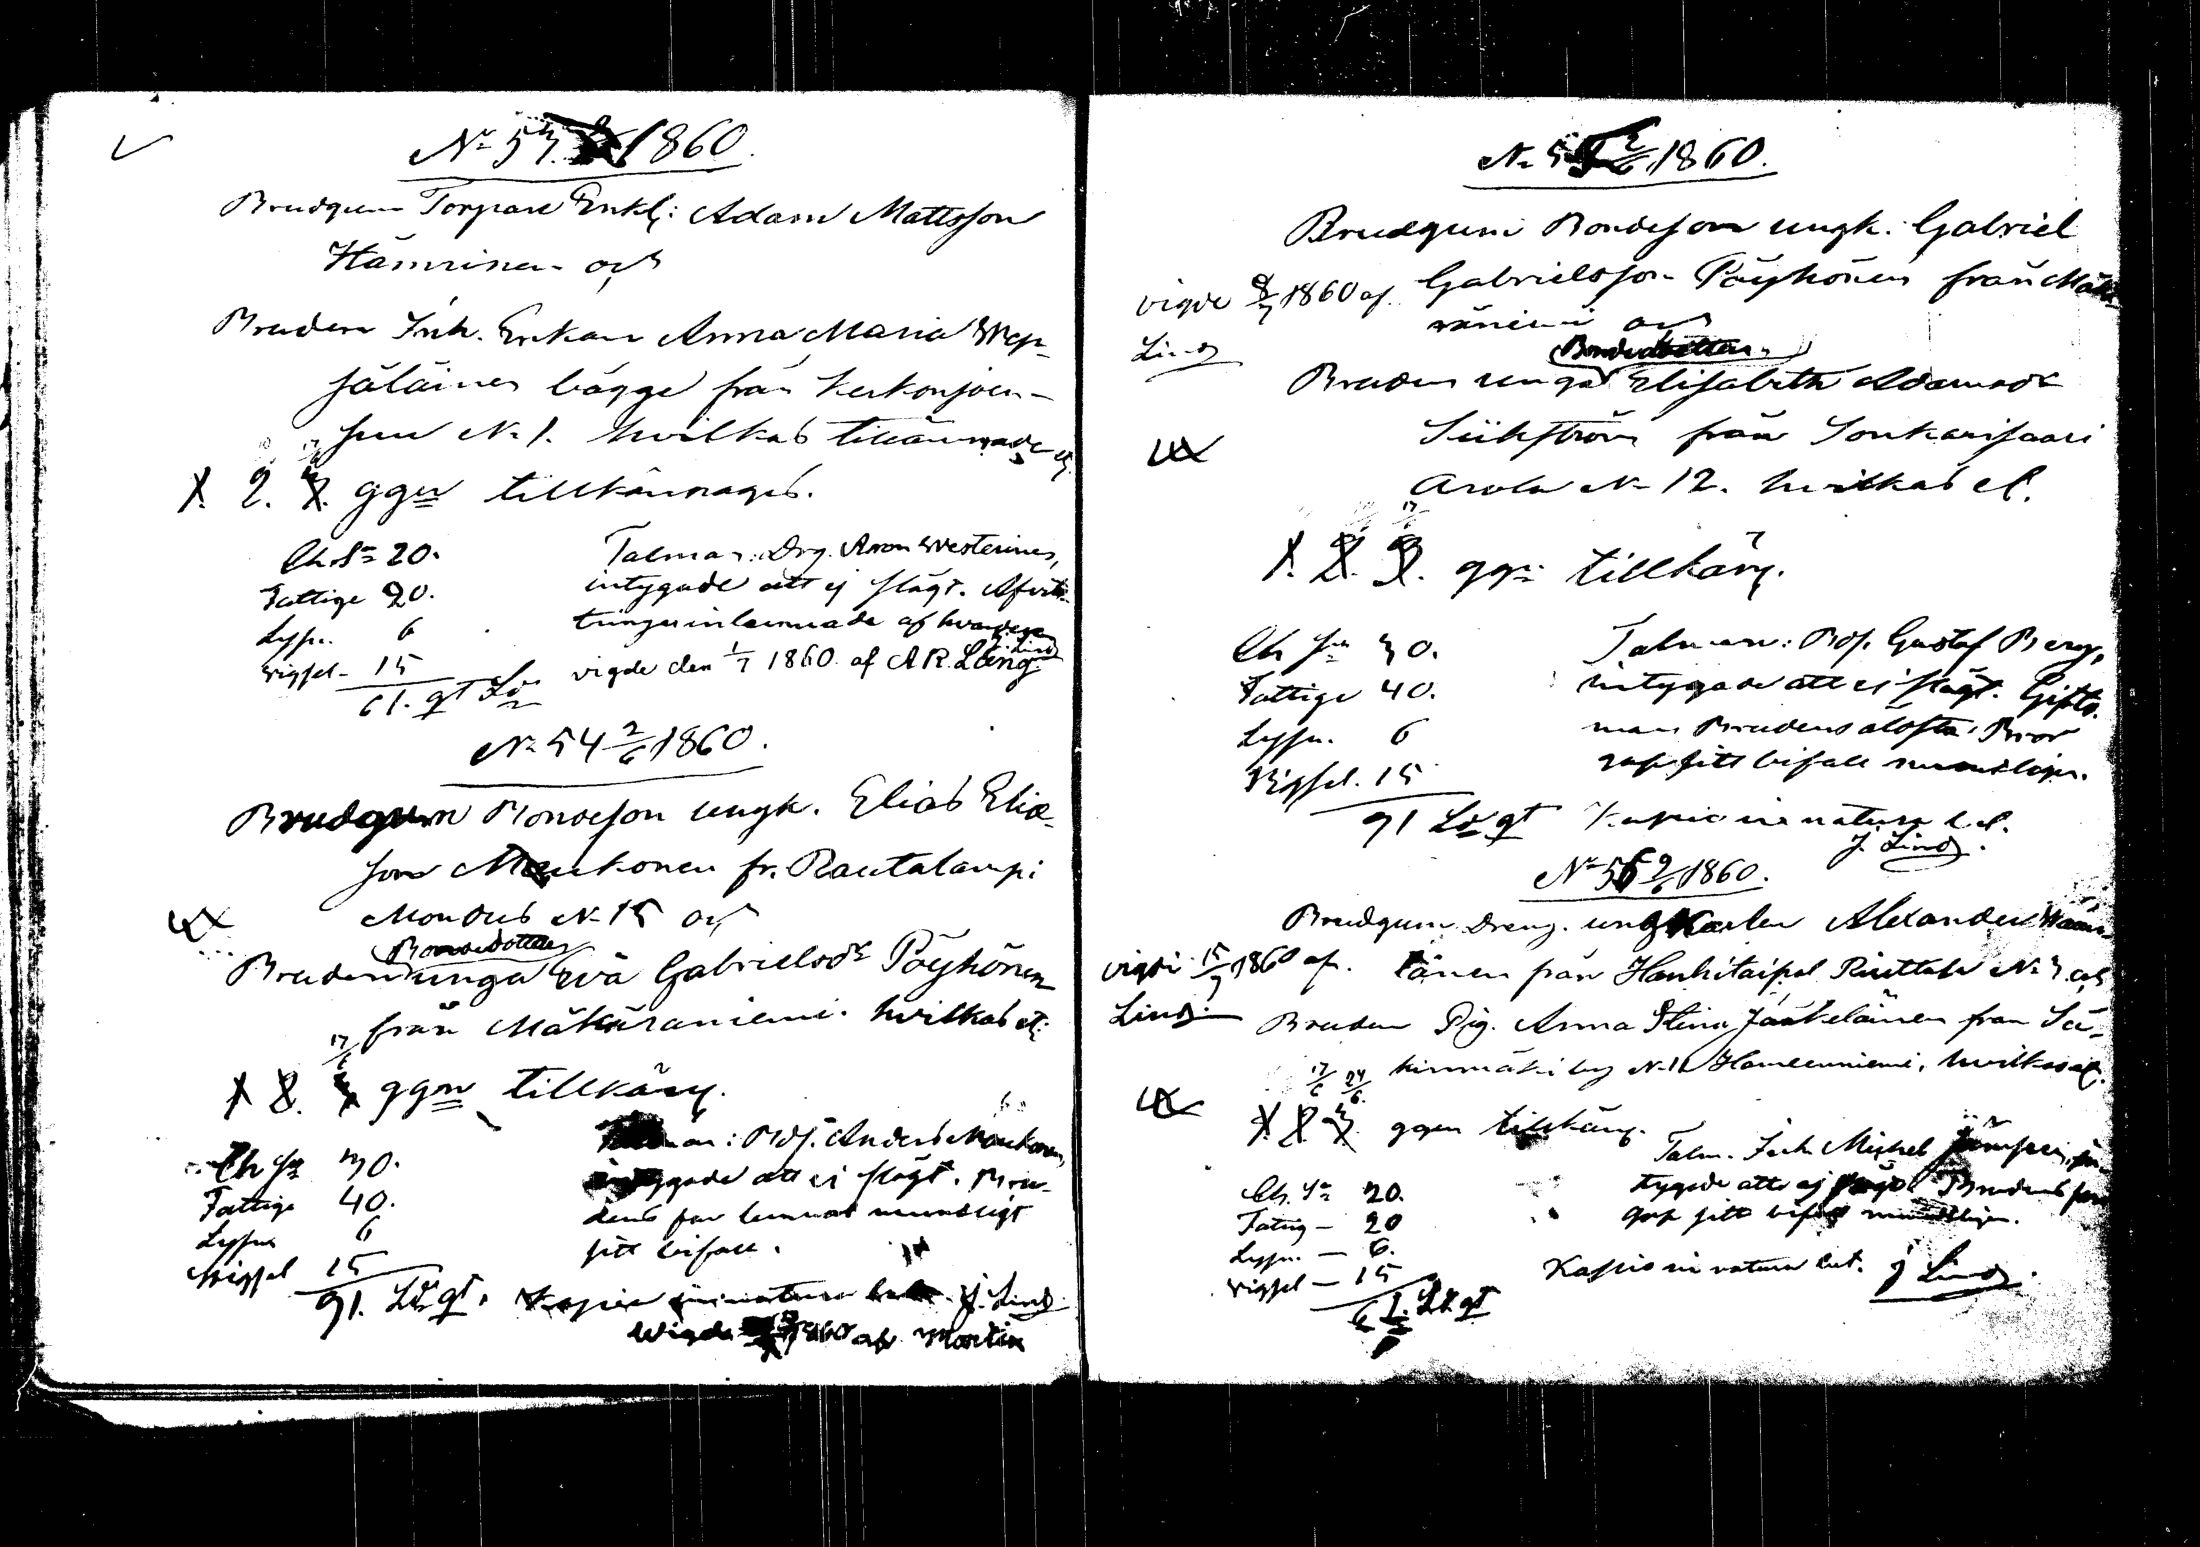 No 53. 1860.
Brudgum Torpare Enkl: Adam Mattsson
Hämrinen och
Bruden Inh. Enkan Anna Maria Wep-
säläinen bägge från Kerkonjoen-
suu No 1. hvilkas
1. 2. 3. ggn tillkännages.
Ch. Sn 20.
Fattige 20.
Lysn. 6
Vigsel 15
61. qt
Talman: Drg. Aron Westerinen,
intygade att ej slägt. Afvitt-
tringen inlemnade af
vigde den 1/7 1860 af A R. Lång
Lind
No 54 2/6 1860.
Brudgum Bondeson ungk. Elias Elia-
son Maukonen fr. Rautalampi
No 15 och
Bondedotter
Bruden unga Eva Gabrielsdr Pöyhönen
från Mäkäräniemi. hvilkas et:
17/6
1. 2. 3. ggn tillkäng.
Ch Sn 30.
Fattige 40.
Lysn 6
Vigsel 15
91. qt.
Talman: Bds. Anders Maukonen,
intygade att ej slägt. Bru-
dens far lemnat mundtligt
sitt bifall.
Kapio in natura J. Lind
Wigde 1860 af Martin
No 55 2/6 1860.
Brudgum Bondeson ungk. Gabriel
Gabrielsson Pöyhönen från Mäkä-
räniemi och
vigde 8/7 1860 af
Lind
Bondedotter
Bruden unga Elisabeth Adamsdr
Siikström från Sonkarisaari
Arola No 12. hvilkas et.
17/6
1. 2. 3. ggr tillkäng.
Ch Sn 30.
Fattige 40.
Lysn. 6
Vigsel. 15
91 qt
Talman: Bds. Gustaf Berg,
intygade att ej slägt. Gifto-
man Brudens äldsta Bror
gaf sitt bifall mundtligen.
Kapio in natura
J. Lind.
No 56 9/6 1860.
Brudgum Dreng. ungkarlen Alexander Hämä-
länen från Hankitaipal Riuttala No 3. och
vigde 15/7 1860 af
Lind.
Bruden Pig. Anna Stina Jääskeläinen från Sä-
kinmäki by No 11 Hameenniemi, hvilkas et.
17/6 24/6
1. 2. 3. ggn tillkäng.
Ch. Sn 20.
Fattig – 20
Lysn. – 6.
Vigsel – 15
61. qt
Talm. Inh. Michel in-
tygade att ej slägt Brudens far
gaf sitt bifall mundtligen.
Kapio in natura J Lind.